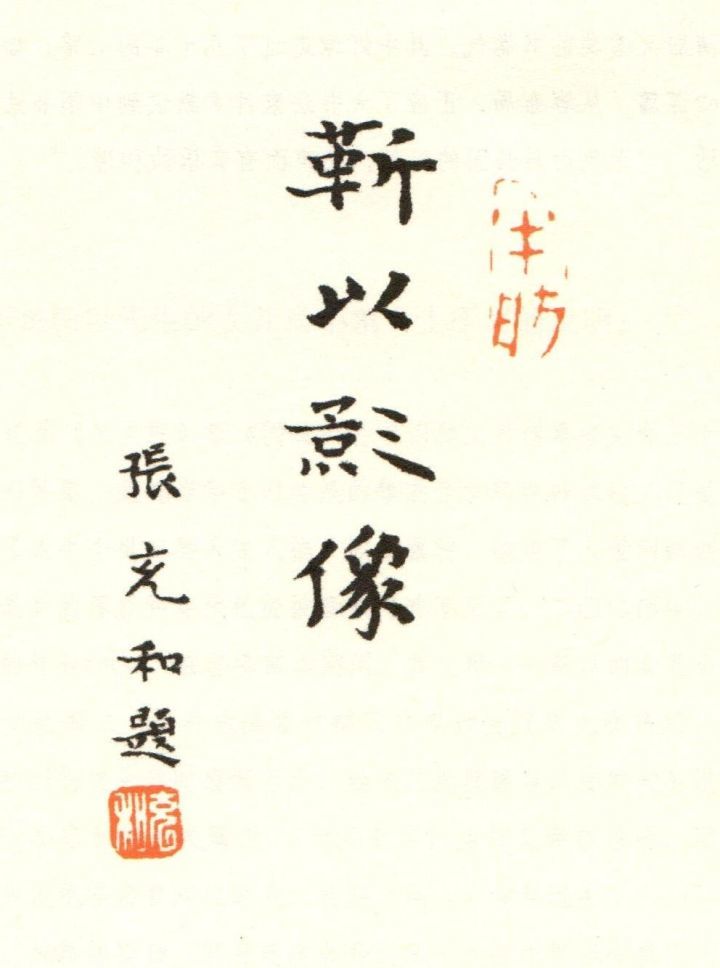 靳以影像
張充和題
充和